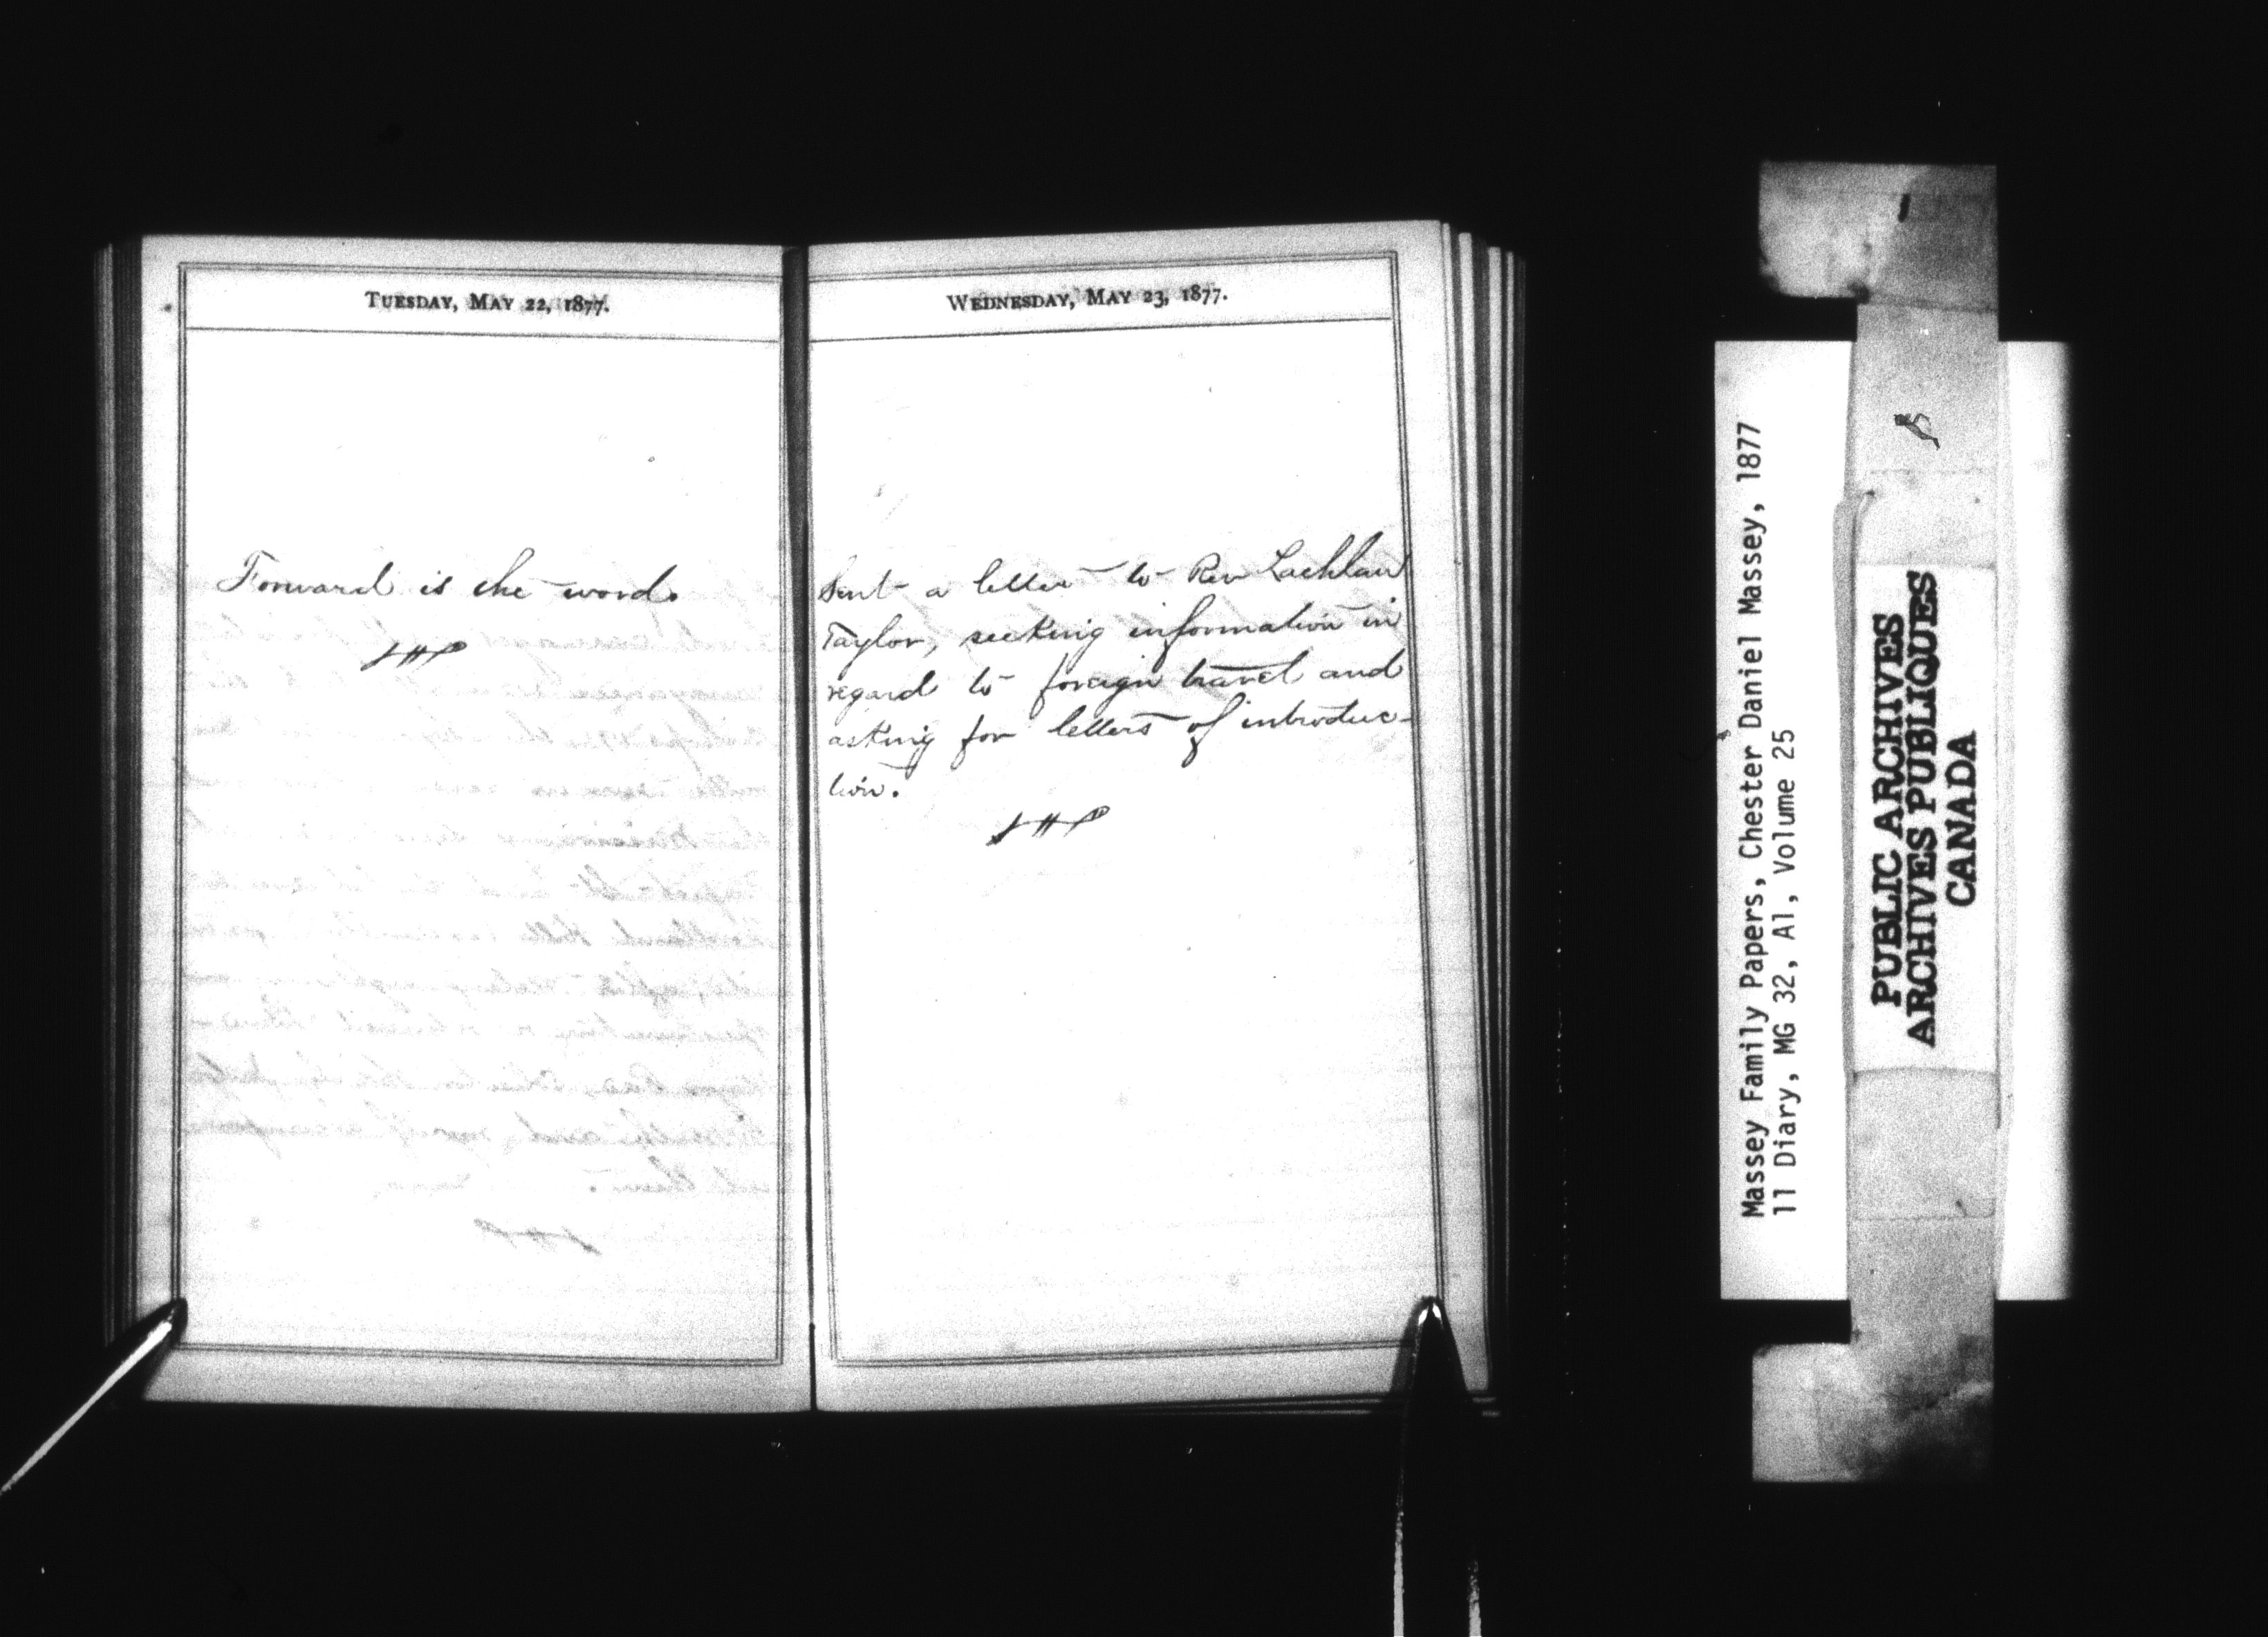 TUESDAY, MAY 22, 1877.
Forward is the word.
WEDNESDAY, MAY 23, 1877.
Sent a letter to Rev Lachlan
Taylor, seeking information in
regard to foreign travel and
asking for letters of introduc-
tion.
Massey Family Papers, Chester Daniel Massey, 1877
11 Diary, MG 32, A1, Volume 25
PUBLIC ARCHIVES
ARCHIVES PUBLIQUES
CANADA